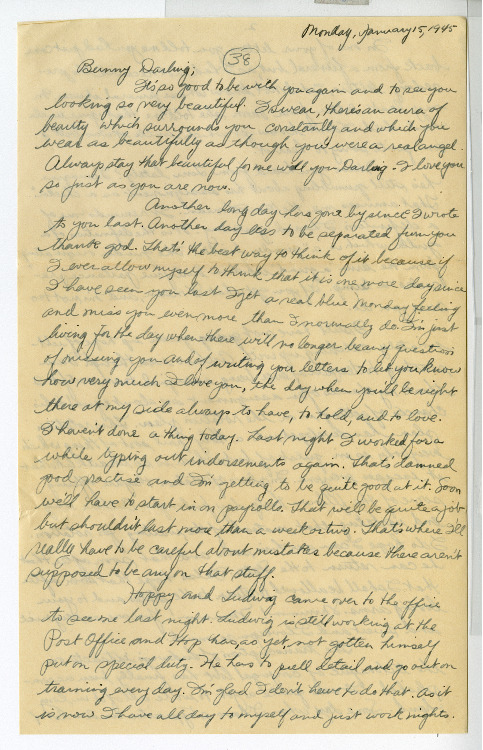 Monday, January 15, 1945
38
Bunny Darling;
It's so good to be with you again and to see you
looking so very beautiful. I swear, there's an aura of
beauty which surrounds you constantly and which you
wear as beautifully as though you were a real angel.
Always stay that beautiful for me will you Darling. I love you
so just as you are now.
Another long day has gone by since I wrote
to you last. Another day less to be separated from you
thank god. That's the best way to think of it because if
I ever allow myself to think that it is one more day since
I have seen you last I get a real blue Monday feeling
and miss you even more than I normally do. I'm just
living for the day when there will no longer be any question
of missing you and of writing your letters to let you know
how very much I love you, the day when you'll be right
there at my side always to have, to hold, and to love.
I haven't done a thing today. Last night I worked for a
while typing out indorsements again. That's damned
good practise and I'm getting to be quite good at it. Soon
we'll have to start in on payrolls. That will be quite a job
but shouldn't last more than a week or two. That's where I'll
really have to be careful about mistakes because there aren't
supposed to be any on that stuff.
Hoppy and Ludwig came over to the office
to see me last night. Ludwig is still working at the
Post Office and Hop has, as yet, not gotten himself
put on special duty. He has to pull detail and go out on
training every day. I'm glad I don't have to do that. As it
is now I have all day to myself and just work nights.